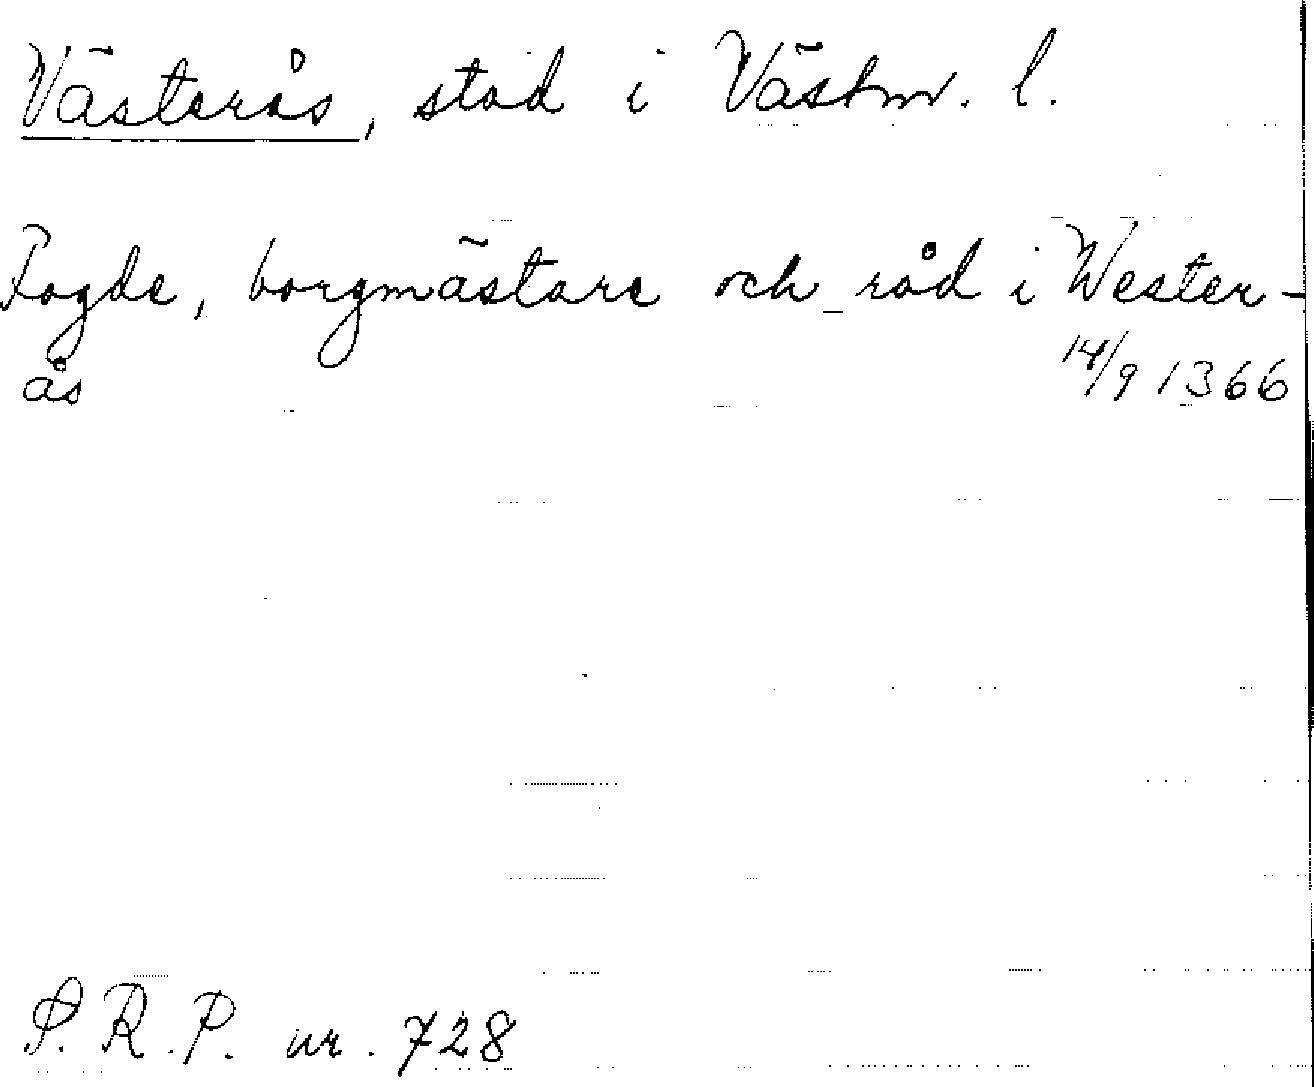 Västerås, stad i Västm. l.
Fogde, borgmästare och råd i Wester-
ås 14/9 1366
S. R. P. nr. 728